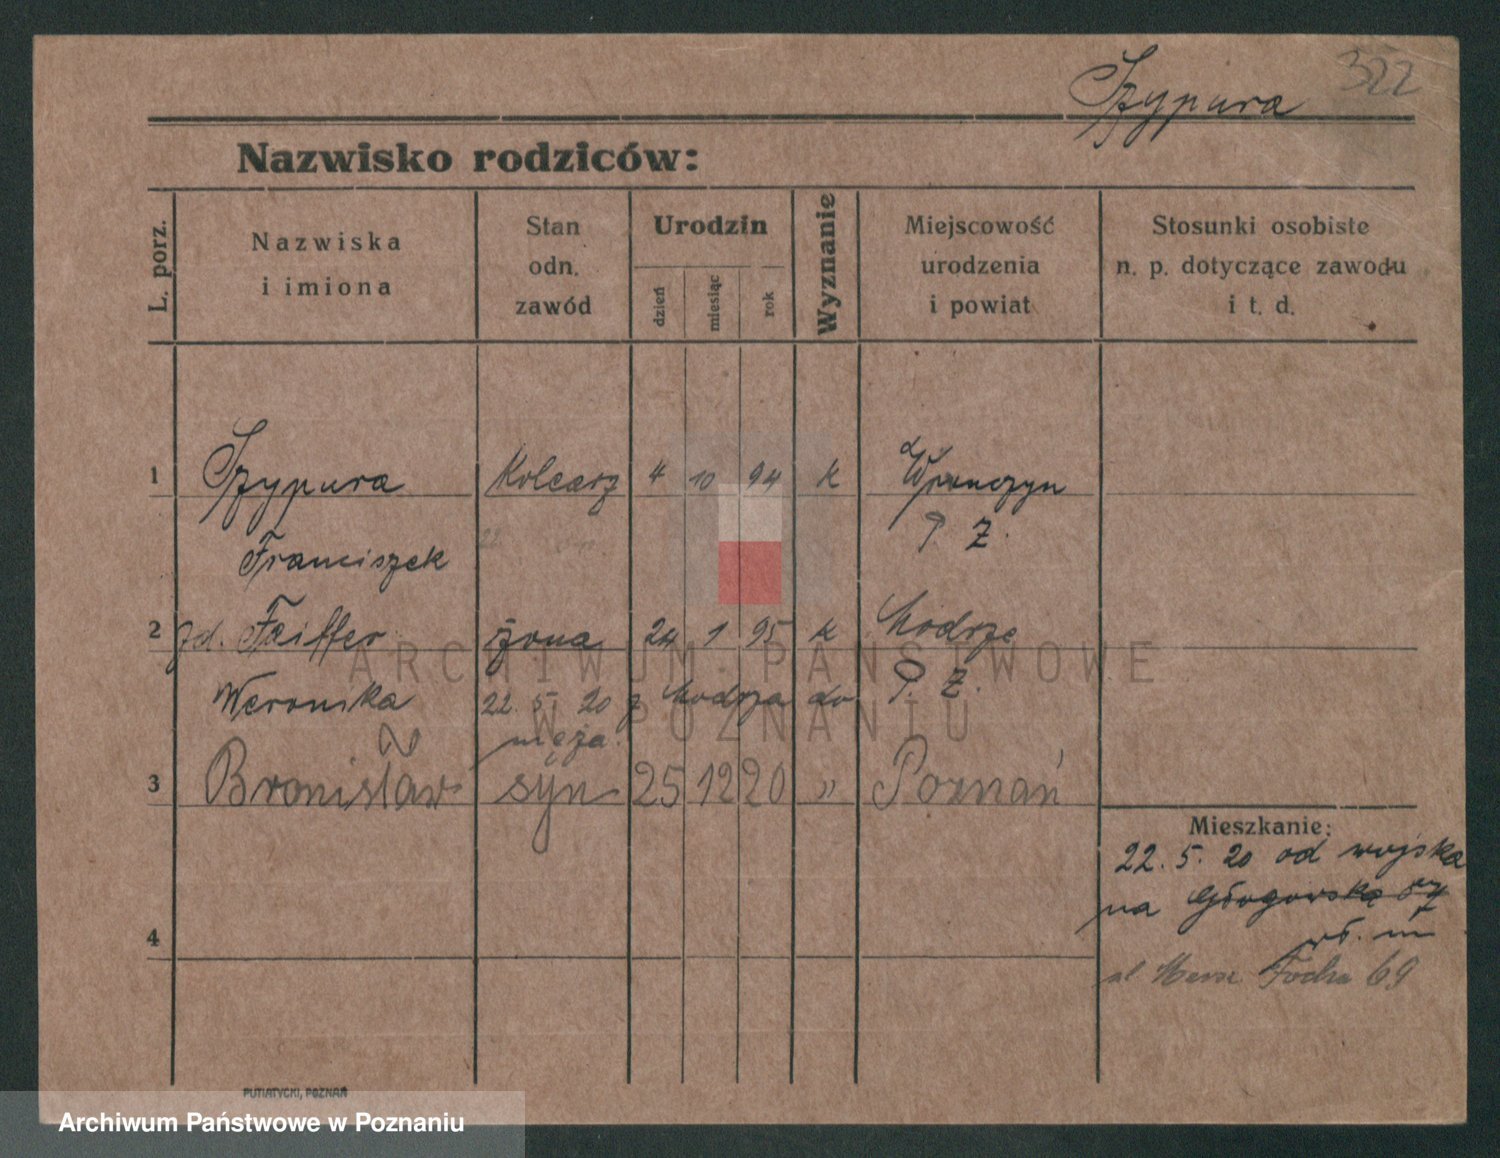 322
Szypura
Nazwisko rodziców:
L. porz.
Nazwiska
i imiona
Stan
odn.
zawód
Urodzin
dzień
miesiąc
rok
Wyznanie
Miejscowość
urodzenia
i powiat
Stosunki osobiste
n. p. dotyczące zawodu
i t. d.
1 Szypura Kolearz 4 10 94 k Wronczyn
Franciszek P. Z.
2 zd. Faiffer żona 24 1 95 k Modrze
Weronika P. Z.
22. 5. 20 z Modrza do
męża.
3 Bronisław syn 25 12 20 " Poznań
4
Mieszkanie:
22. 5. 20 od wojska
na Głogowską 57
wł. m
ul. Marsz. Focha 69
PUTIATYCKI, POZNAŃ
ARCHIWUM PAŃSTWOWE
W POZNANIU
Archiwum Państwowe w Poznaniu